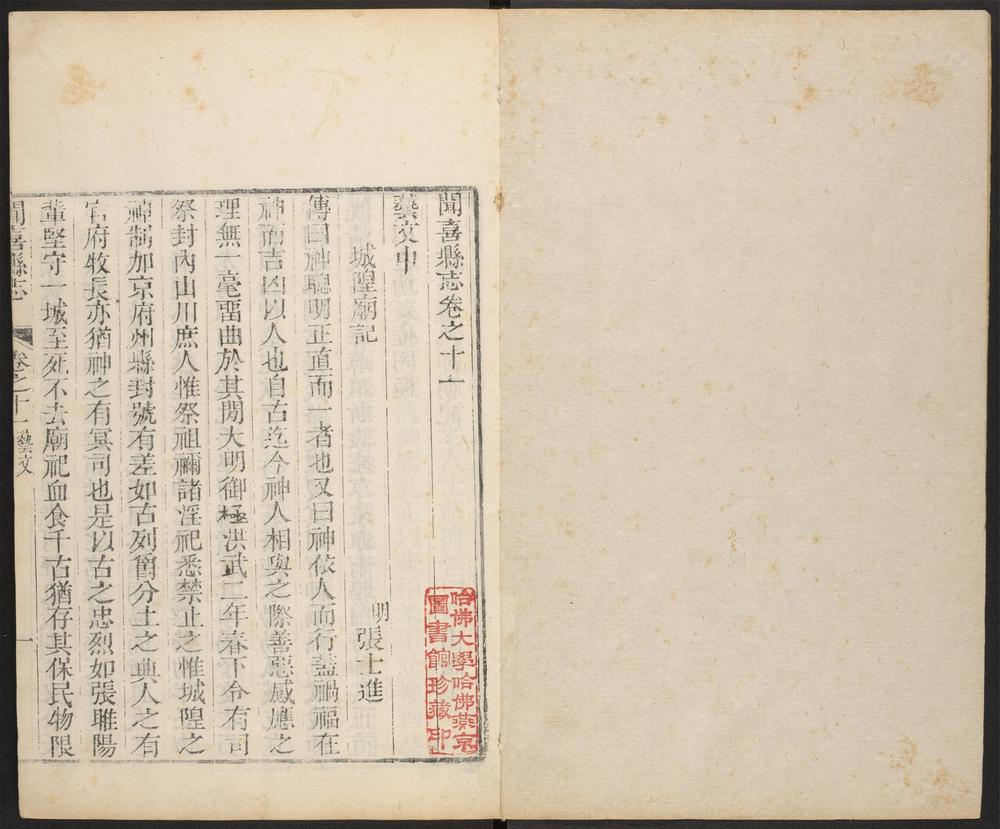 聞喜縣志卷之十一
藝文中
城隍廟記
明張士進
傳曰神聰明正直而一者也又曰神依人而行蓋禍福在
神而吉凶以人也自古迄今神人相與之際善惡感應之
理無一毫畱曲於其閒大明御極洪武二年春下令有司
祭封內山川庶人惟祭祖禰諸淫祀悉禁止之惟城隍之
神制加京府州縣封號有差如古列爵分土之典人之有
官府牧長亦猶神之有冥司也是以古之忠烈如張睢陽
輩堅守一城至死不去廟祀血食千古猶存其保民物限
聞喜縣志
卷之十一藝文
一
哈佛大學哈佛燕京
圖書館珍藏印